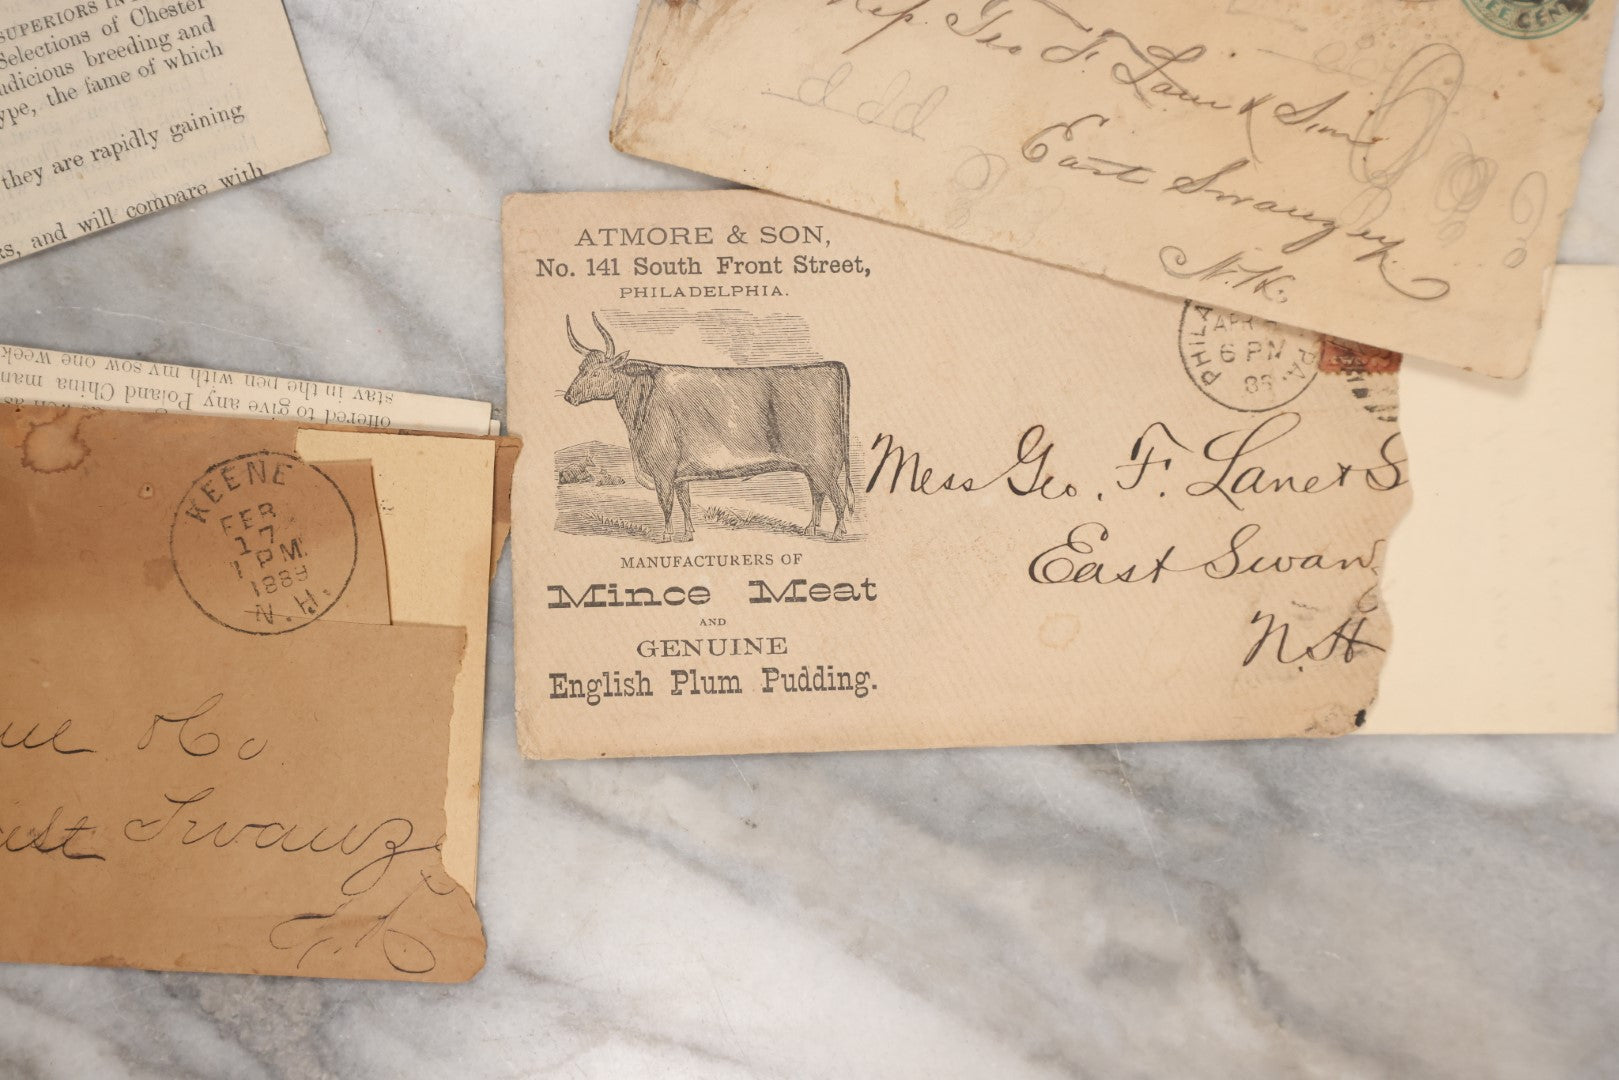 SUPERIORS IN
Selections of Chester
judicious breeding and
type, the fame of which
they are rapidly gaining
and will compare with
Geo F. Lane & Son
East Swanzey
N.H.
THREE CENTS
ATMORE & SON,
No. 141 South Front Street,
PHILADELPHIA.
MANUFACTURERS OF
Mince Meat
AND
GENUINE
English Plum Pudding.
PHILA PA.
APR
6 PM
Mess Geo. F. Lane & S
East Swan
N.H
stay in the pen with my sow one week
offered to give any Poland China man
KEENE
FEB
17
1 PM
1889
N.H.
Co
East Swanze